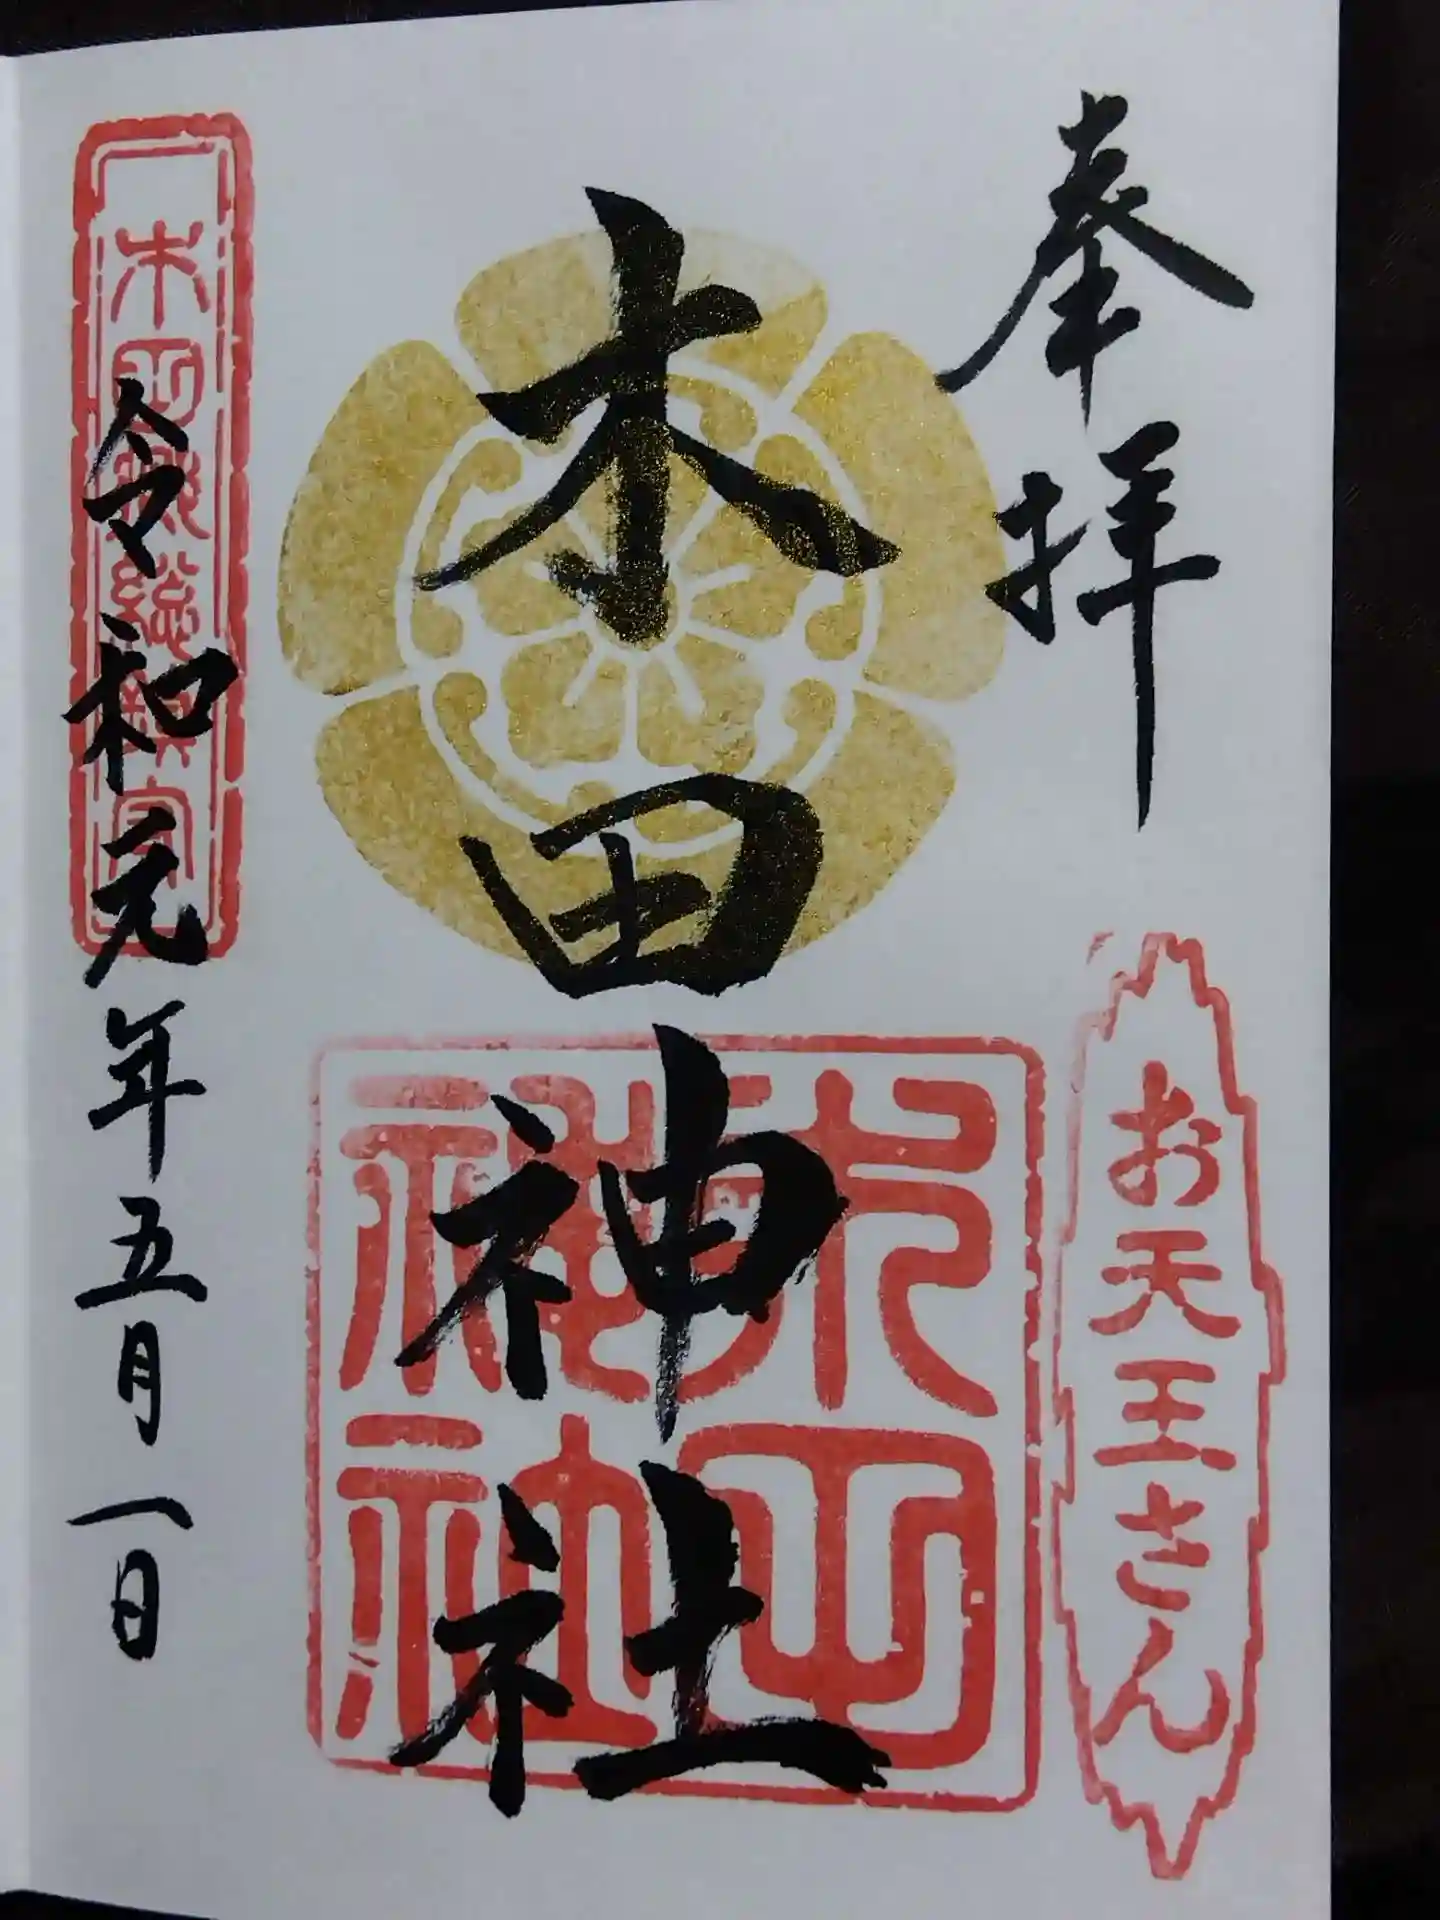 奉拝
お天王さん
木田神社
木田神社
令和元年五月一日